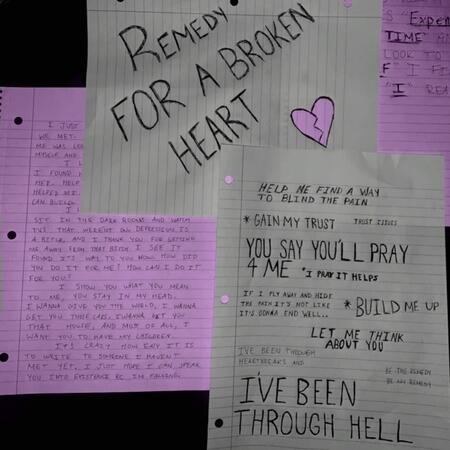 REMEDY
FOR A BROKEN
HEART
"EXPEN
TIME"
LOOK TO
"I"
I JUST
WE MET.
ME WAS
MYSELF AND
I FOUND
MET. HELP
HELPED ME.
CAN BUILD
SIT IN THE DARK ROOMS AND WATCH
TVS THAT WEREN'T ON. DEPRESSION IS
A BITCH, AND I THANK YOU FOR GETTING
ME AWAY FROM THAT BITCH. I SEE IT
FOUND ITS WAY TO YOU NOW. HOW DID
YOU DO IT FOR ME? HOW CAN I DO IT
FOR YOU?
I SHOW YOU WHAT YOU MEAN
TO ME, YOU STAY IN MY HEAD.
I WANNA GIVE YOU THE WORLD, I WANNA
GET YOU THREE CARS, I WANNA GET YOU
THAT HOUSE, AND MOST OF ALL, I
WANT YOU TO HAVE MY CHILDREN.
IT'S CRAZY HOW EASY IT IS
TO WRITE TO SOMEONE I HAVEN'T
MET YET, I JUST HOPE I CAN SPEAK
YOU INTO EXISTENCE BC IM FALLING
HELP ME FIND A WAY
TO BLIND THE PAIN
* GAIN MY TRUST TRUST ISSUES
YOU SAY YOU'LL PRAY
4 ME *I PRAY IT HELPS
IF I FLY AWAY AND HIDE
THE PAIN IT'S NOT LIKE
IT'S GONNA END WELL..
* BUILD ME UP
LET ME THINK
ABOUT YOU
I'VE BEEN THROUGH
HEARTBREAKS AND
BE THE REMEDY
BE MY REMEDY
I'VE BEEN
THROUGH HELL